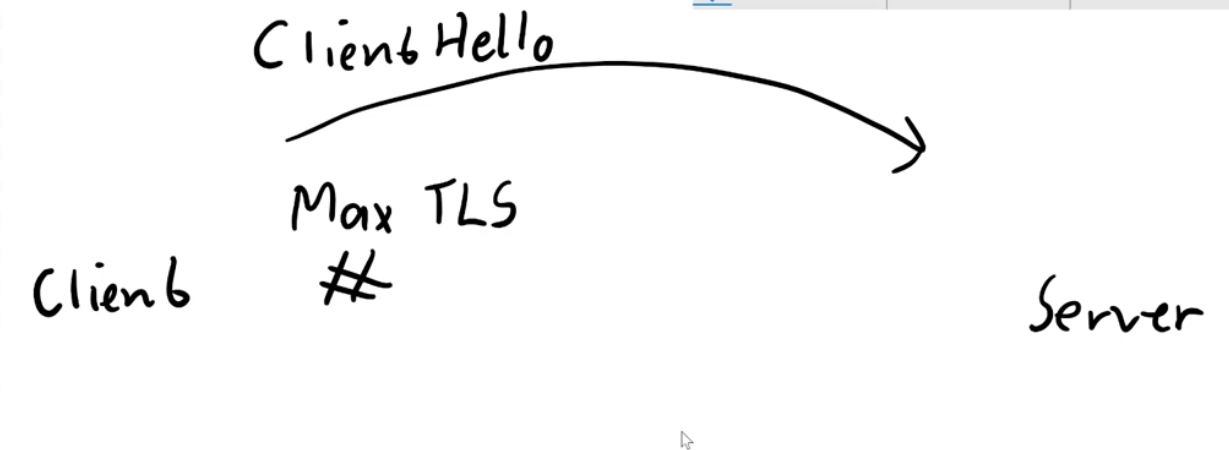 Client Hello
Max TLS
#
Client
Server